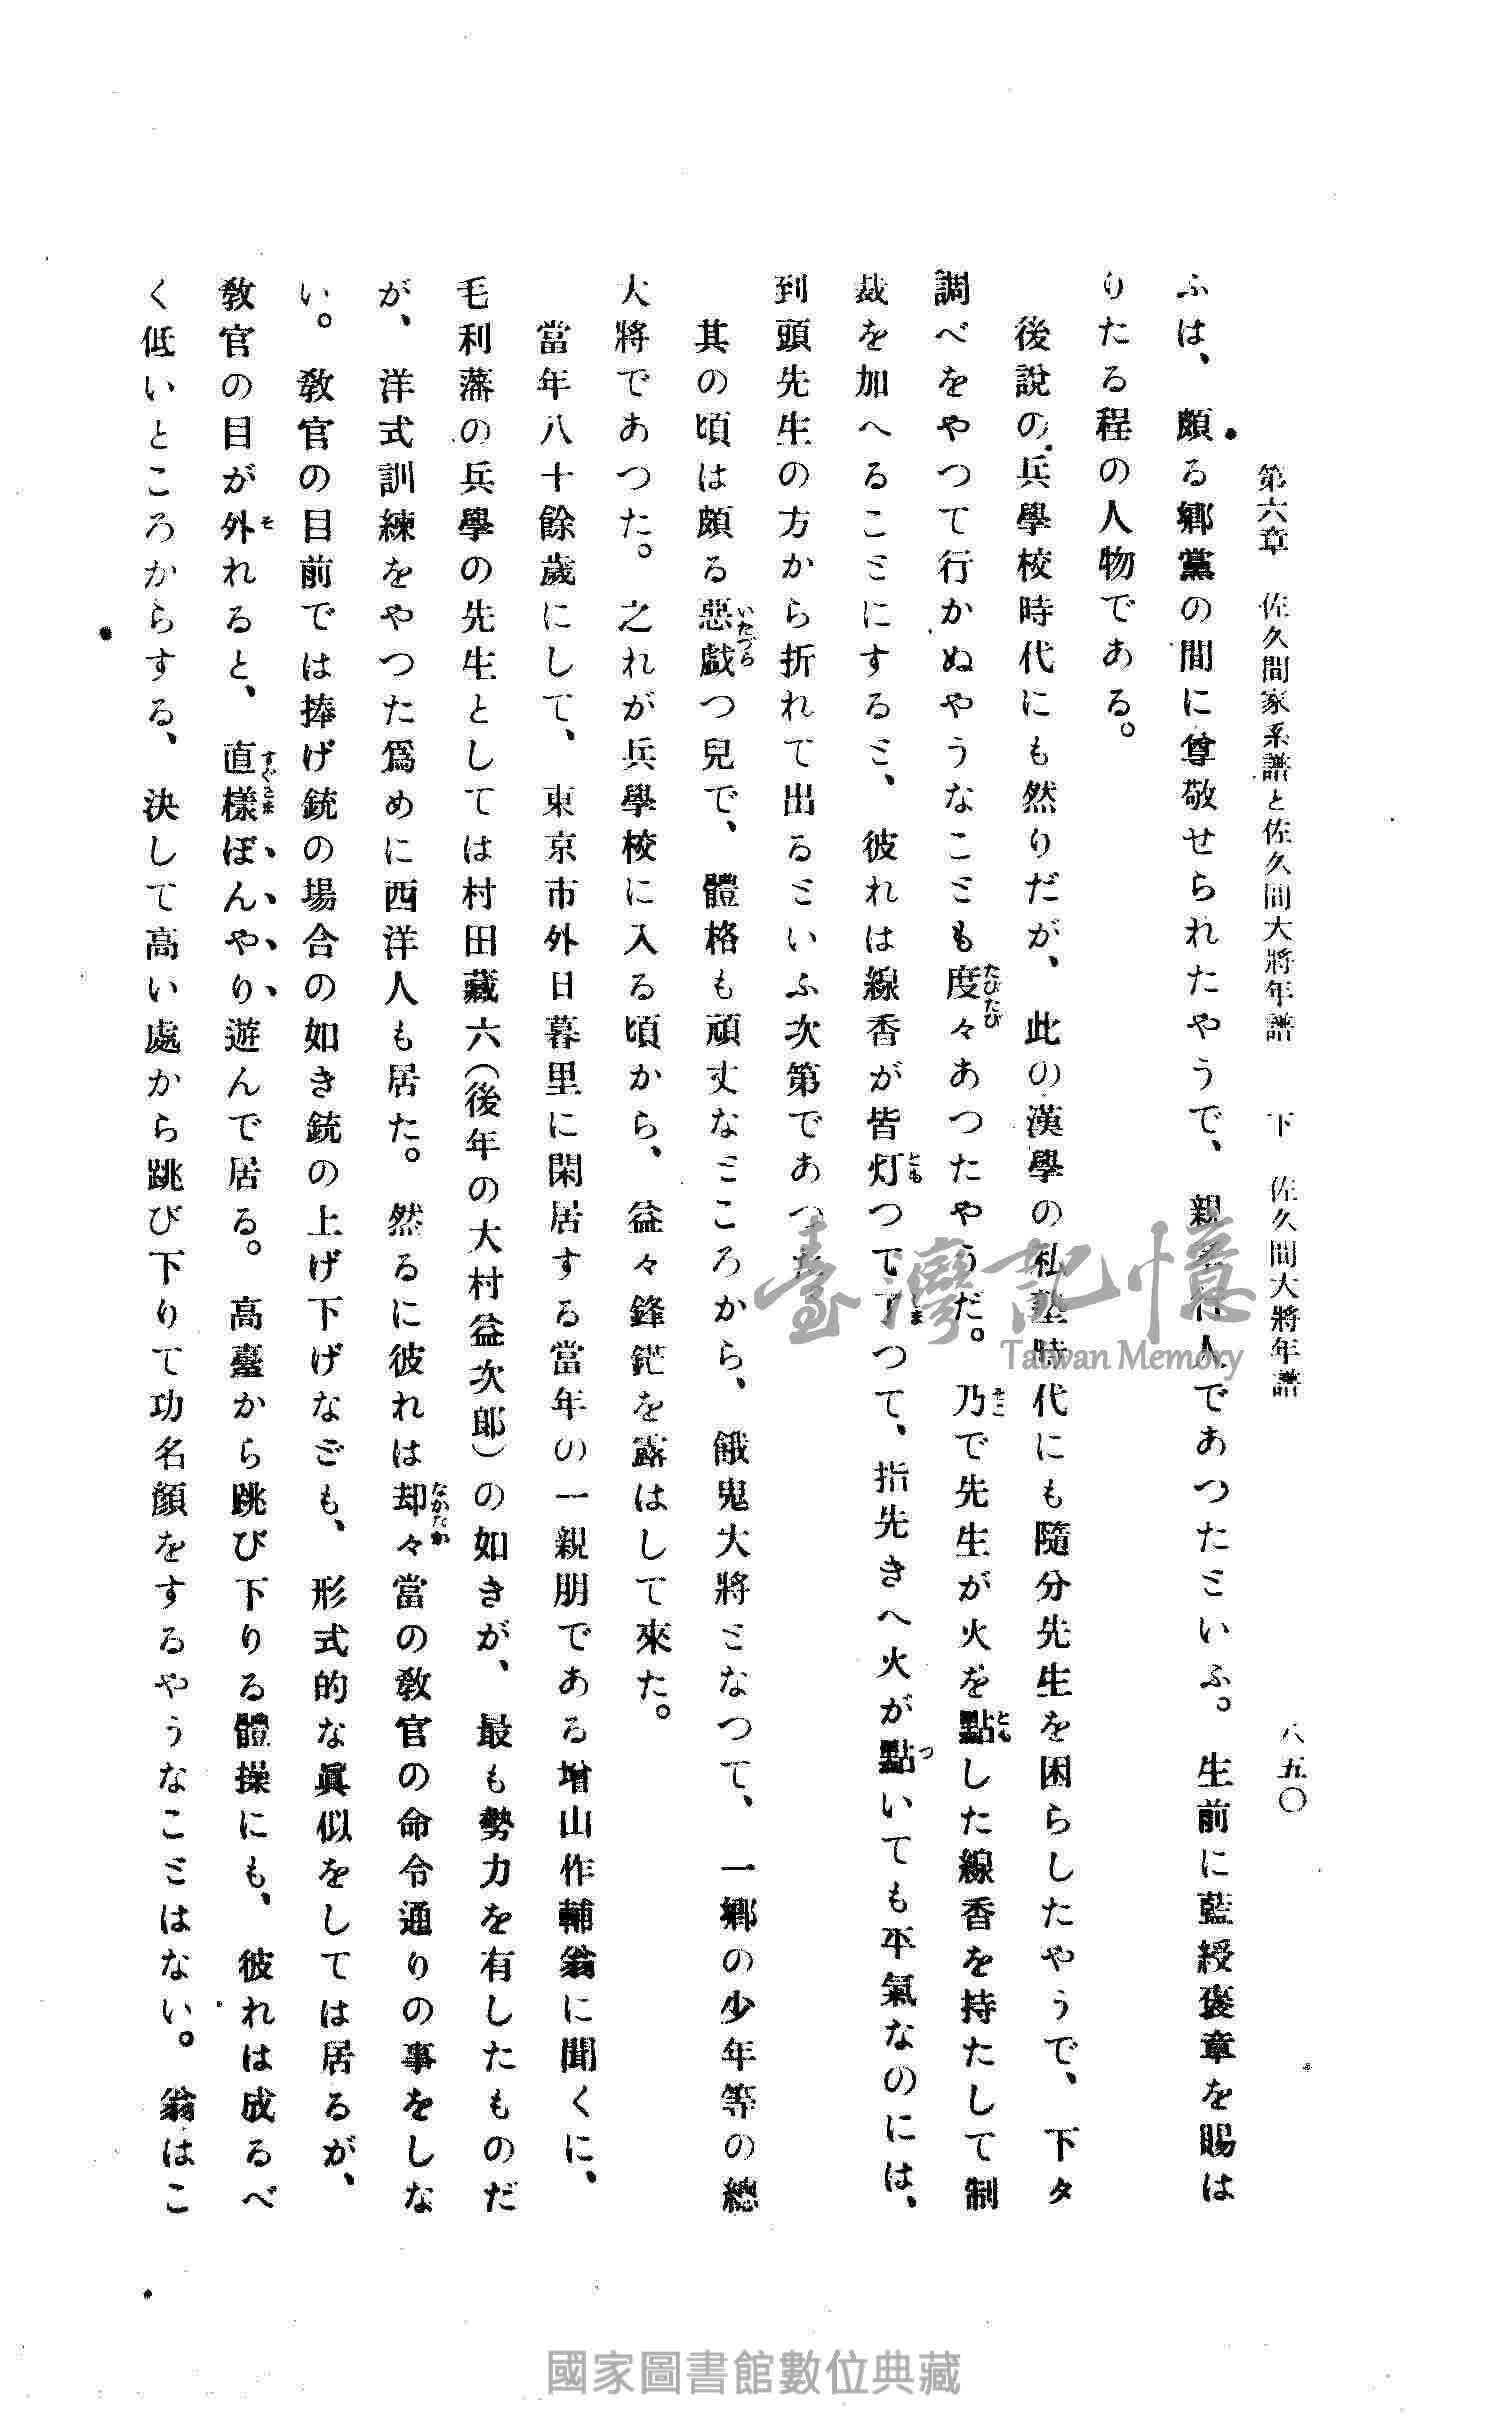 第六章　佐久間家系譜と佐久間大將年譜　下　佐久間大將年譜　八五〇
ふは、頗る鄕黨の間に尊敬せられたやうで、親　行人であつたといふ。生前に藍綬褒章を賜は
りたる程の人物である。
後說の兵學校時代にも然りだが、此の漢學の私塾時代にも隨分先生を困らしたやうで、下タ
調べをやつて行かぬやうなことも度々あつたやうだ。乃で先生が火を點した線香を持たして制
たびたび
そこ
とも
裁を加へることにすると、彼れは線香が皆灯つて了つて、指先きへ火が點いても平氣なのには、
とも
ま
つ
到頭先生の方から折れて出るといふ次第であつた
其の頃は頗る惡戲つ兒で、體格も頑丈なところから、餓鬼大將となつて、一鄕の少年等の總
いたづら
大將であつた。之れが兵學校に入る頃から、益々鋒鋩を露はして來た。
當年八十餘歲にして、東京市外日暮里に閑居する當年の一親朋である增山作輔翁に聞くに、
毛利藩の兵學の先生としては村田藏六（後年の大村益次郎）の如きが、最も勢力を有したものだ
が、洋式訓練をやつた爲めに西洋人も居た。然るに彼れは却々當の敎官の命令通りの事をしな
なかなか
い。敎官の目前では捧げ銃の場合の如き銃の上げ下げなども、形式的な眞似をしては居るが、
敎官の目が外れると、直樣ぼんやり遊んで居る。高臺から跳び下りる體操にも、彼れは成るべ
そ
すぐさま
く低いところからする、決して高い處から跳び下りて功名顏をするやうなことはない。翁はこ
臺灣記憶
Taiwan Memory
國家圖書館數位典藏